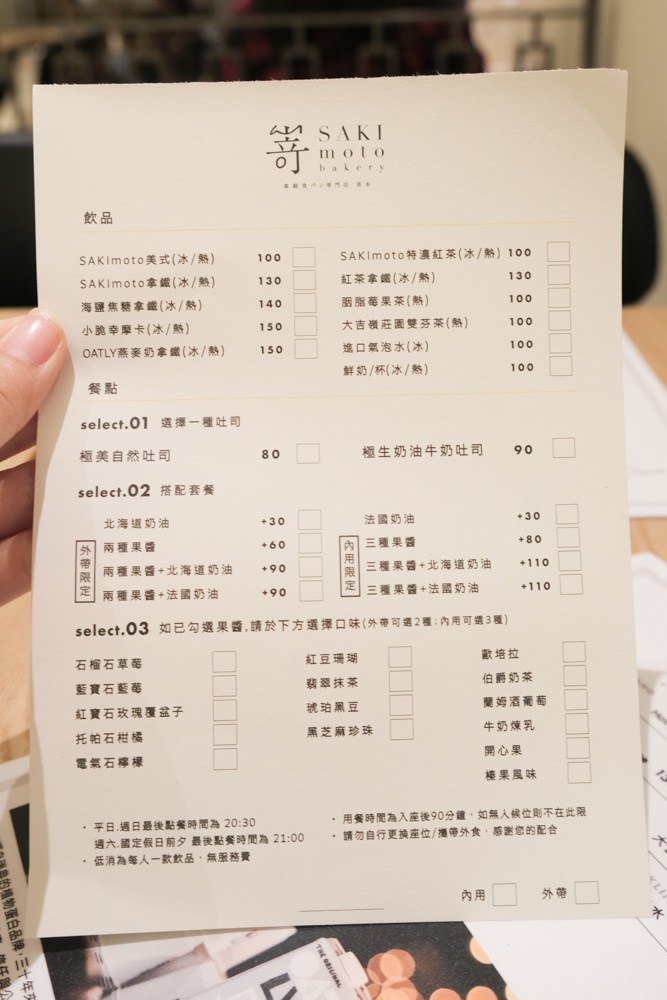 嵜 SAKI
moto
bakery
高級食パン専門店 嵜本
飲品
SAKImoto美式(冰/熱) 100
SAKImoto拿鐵(冰/熱) 130
海鹽焦糖拿鐵(冰/熱) 140
小脆幸摩卡(冰/熱) 150
OATLY燕麥奶拿鐵(冰/熱) 150
SAKImoto特濃紅茶(冰/熱) 100
紅茶拿鐵(冰/熱) 130
胭脂莓果茶(熱) 100
大吉嶺莊園雙芬茶(熱) 100
進口氣泡水(冰) 100
鮮奶/杯(冰/熱) 100
餐點
select.01 選擇一種吐司
極美自然吐司 80
極生奶油牛奶吐司 90
select.02 搭配套餐
北海道奶油 +30
外帶限定
兩種果醬 +60
兩種果醬+北海道奶油 +90
兩種果醬+法國奶油 +90
法國奶油 +30
內用限定
三種果醬 +80
三種果醬+北海道奶油 +110
三種果醬+法國奶油 +110
select.03 如已勾選果醬,請於下方選擇口味(外帶可選2種;內用可選3種)
石榴石草莓
藍寶石藍莓
紅寶石玫瑰覆盆子
托帕石柑橘
電氣石檸檬
紅豆珊瑚
翡翠抹茶
琥珀黑豆
黑芝麻珍珠
歐培拉
伯爵奶茶
蘭姆酒葡萄
牛奶煉乳
開心果
榛果風味
· 平日.週日最後點餐時間為 20:30
週六.國定假日前夕 最後點餐時間為 21:00
· 低消為每人一款飲品，無服務費
· 用餐時間為入座後90分鐘，如無人候位則不在此限
· 請勿自行更換座位/攜帶外食，感謝您的配合
內用 外帶
THE ORIGINAL